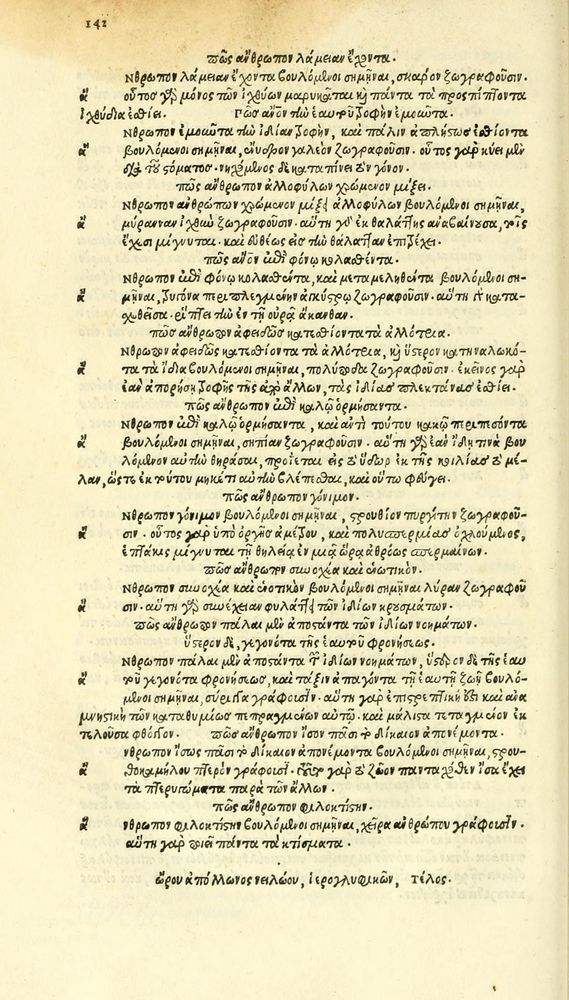 142
πῶς ἄνθρωπον λάμειαν ἔχοντα.
νθρωπον λάμειαν ἔχοντα βουλόμενοι σημῆναι, σκάρον ζωγραφοῦσιν.
ἄ οὗτος γὰρ μόνος τῶν ἰχθύων μαρυκᾶται καὶ πάντα τὰ προσπίπτοντα
ἰχθύδια ἐσθίει. πῶς ἄνθρωπον τὴν ἑαυτοῦ τροφὴν ἐμοῦντα.
νθρωπον ἐμοῦντα τὴν ἰδίαν τροφὴν, καὶ πάλιν ἀπλήστως ἐσθίοντα
ἄ βουλόμενοι σημῆναι, ἔνυδρον γαλεὸν ζωγραφοῦσιν. οὗτος γὰρ κύει μὲν
διὰ τοῦ στόματος. νηχόμενος δὲ καταπίνει τὸν γόνον.
πῶς ἄνθρωπον ἀλλοφύλων χρώμενον μίξει.
νθρωπον ἀνθρώπων χρώμενον μίξει ἀλλοφύλων βουλόμενοι σημῆναι,
ἄ μύραιναν ἰχθὺν ζωγραφοῦσιν. αὕτη γὰρ ἐκ θαλάττης ἀναβαίνουσα, τοῖς
ἔχεσι μίγνυται. καὶ εὐθέως εἰς τὴν θάλατταν ἐπιτρέχει.
πῶς ἄνθρωπον ἐπὶ φόνῳ κολασθέντα.
νθρωπον ἐπὶ φόνῳ κολασθέντα, καὶ μεταμεληθέντα βουλόμενοι ση-
ἄ μῆναι, τρυγόνα περιπλεγμένην ἀγκίστρῳ ζωγραφοῦσιν. αὕτη γὰρ κατα-
σχεθεῖσα. ῥίπτει τὴν ἐν τῇ οὐρᾷ ἄκανθαν.
πῶς ἄνθρωπον ἀφειδῶς κατεσθίοντα τὰ ἀλλότρια.
νθρωπον ἀφειδῶς κατεσθίοντα τὰ ἀλλότρια, καὶ ὕστερον καταναλωκό-
ἄ τα τὰ ἴδια βουλόμενοι σημῆναι, πολύποδα ζωγραφοῦσιν. ἐκεῖνος γὰρ
ἐὰν ἀπορήσῃ τροφῆς τῆς ἀπὸ ἄλλων, τὰς ἰδίας πλεκτάνας ἐσθίει.
πῶς ἄνθρωπον ἐπὶ καλῷ ὁρμήσαντα.
νθρωπον ἐπὶ καλῷ ὁρμήσαντα, καὶ ἀντὶ τούτου κακῷ περιπεσόντα
ἄ βουλόμενοι σημῆναι, σηπίαν ζωγραφοῦσιν. αὕτη γὰρ ἐὰν ἴδῃ τινὰ βου
λόμενον αὐτὴν θηρᾶσαι, προίεται εἰς τὸ ὕδωρ ἐκ τῆς κοιλίας τὸ μέ-
λαν, ὥστε ἐκ τούτου μηκέτι αὐτὴν βλέπεσθαι, καὶ οὕτω φεύγει.
πῶς ἄνθρωπον γόνιμον.
νθρωπον γόνιμον βουλόμενοι σημῆναι, στρουθίον πυργίτην ζωγραφοῦ-
ἄ σιν. οὗτος γὰρ ὑπὸ ὀργῆς ἀμέτρου, καὶ πολυσπερμίας ὀχλούμενος,
ἑπτάκις μίγνυται τῇ θηλείᾳ ἐν μιᾷ ὥρᾳ ἀθρόως σπερμαίνων.
πῶς ἄνθρωπον συνοχέα καὶ ἑνωτικόν.
νθρωπον συνοχέα καὶ ἑνωτικὸν βουλόμενοι σημῆναι λύραν ζωγραφοῦ
ἄ σιν. αὕτη γὰρ συνέχειαν φυλάττει τῶν ἰδίων κρουσμάτων.
πῶς ἄνθρωπον πάλαι μὲν ἀποστάντα τῶν ἰδίων νοημάτων.
ὕστερον δὲ, γεγονότα τῆς ἑαυτοῦ φρονήσεως.
νθρωπον πάλαι μὲν ἀποστάντα τῶν ἰδίων νοημάτων, ὕστερον δὲ τῆς ἑαυ
ἄ τοῦ γεγονότα φρονήσεως, καὶ τάξιν ἀπαγόντα τῇ ἑαυτῇ ζωῇ βουλό-
μενοι σημῆναι, σύριγγα γράφουσιν. αὕτη γὰρ ἐπιστρεπτική ἐστι καὶ ἀνα
μνηστικὴ τῶν καταθυμίως πεπραγμένων αὐτῷ. καὶ μάλιστα τεταγμένον ἐκ
τελοῦσα φθόγγον. πῶς ἄνθρωπον ἴσον πᾶσι τὸ δίκαιον ἀπονέμοντα.
νθρωπον ἴσως πᾶσι τὸ δίκαιον ἀπονέμοντα βουλόμενοι σημῆναι, στρου-
ἄ θοκαμήλου πτερὸν γράφουσι. τοῦτο γὰρ τὸ ζῶον πανταχόθεν ἴσα ἔχει
τὰ πτερυγώματα παρὰ τῶν ἄλλων.
πῶς ἄνθρωπον φιλοκτίστην.
ἄ νθρωπον φιλοκτίστην βουλόμενοι σημῆναι, χεῖρα ἀνθρώπου γράφουσιν.
αὕτη γὰρ ποιεῖ πάντα τὰ κτίσματα.
ὥρου ἀπόλλωνος νειλώου, ἱερογλυφικῶν, τέλος.